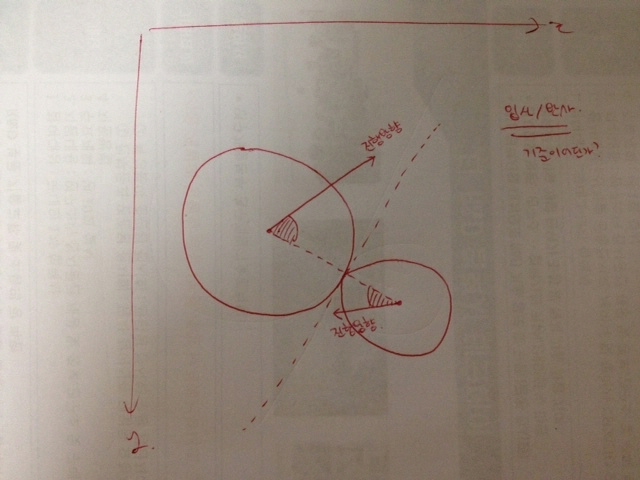 x
입사/반사.
기준이어딘가?
진행방향
진행방향.
y.